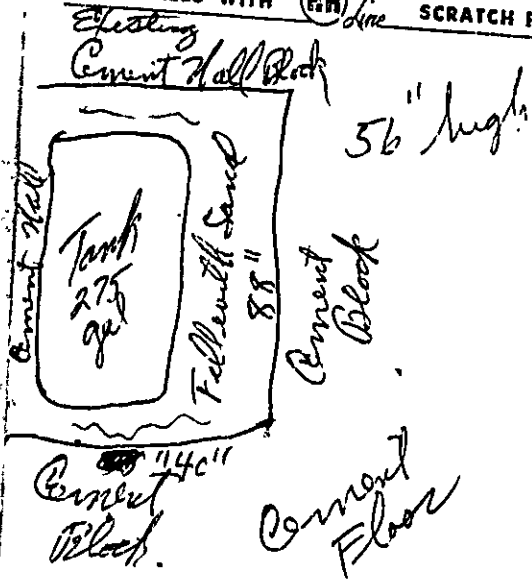 WITH E&M Line SCRATCH
Existing
Cement Wall Block
56" high
Cement Wall
Tank
275
gal
Fill with Sand
88"
Cement
Block
"40"
Cement
Block.
Cement
Floor